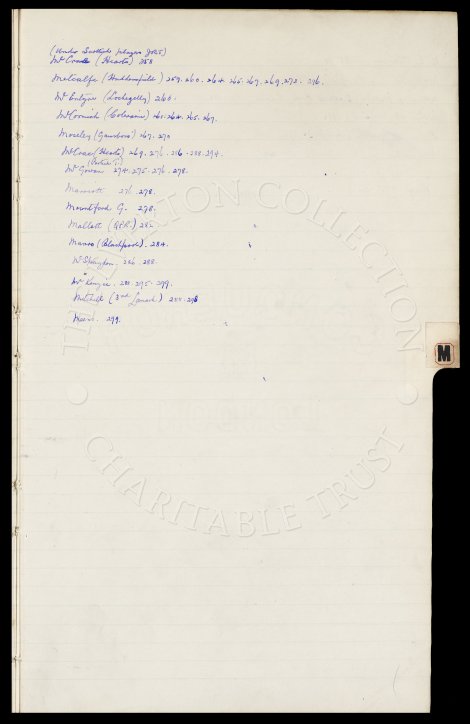 (Under Scottish players
Mc (Hearts) 258
Metcalfe (Huddersfield) 259. 260. 264. 265. 267. 269. 272. 296.
McEntyre (Lochgelly) 260.
McCormick (Coleraine) 264. 265. 267.
Moseley (Gainsboro) 267. 270
McCrae (Hearts) 269. 276. 286. 288. 294.
McGowan 274. 275. 276. 278.
Marriott 276. 278.
Mountford G. 278.
Mallett (QPR.)
Munro (Blackpool). 284.
286. 288.
McKenzie. 288. 295. 299.
Mitchell (3rd Lanark)
299.
M
THE EVERTON COLLECTION
CHARITABLE TRUST